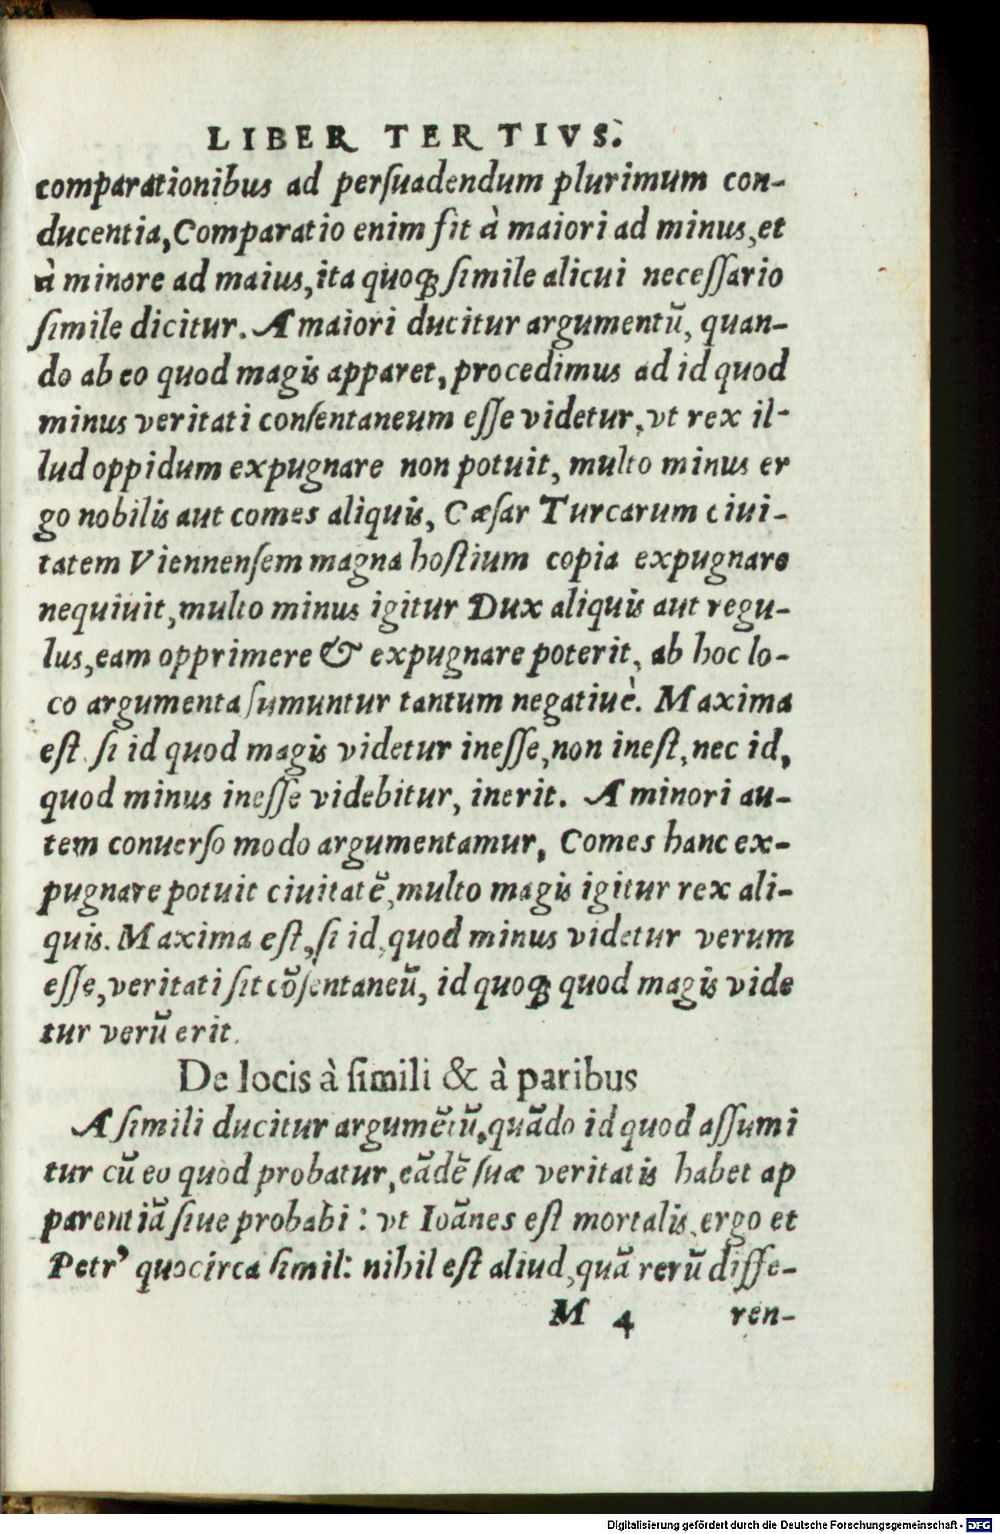 LIBER TERTIVS.
comparationibus ad perſuadendum plurimum con-
ducentia, Comparatio enim fit à maiori ad minus, et
à minore ad maius, ita quoqꝫ ſimile alicui neceſſario
ſimile dicitur. A maiori ducitur argumentũ, quan-
do ab eo quod magis apparet, procedimus ad id quod
minus veritati conſentaneum eſſe videtur, vt rex il-
lud oppidum expugnare non potuit, multo minus er
go nobilis aut comes aliquis, Cæſar Turcarum ciui-
tatem Viennenſem magna hoſtium copia expugnare
nequiuit, multo minus igitur Dux aliquis aut regu-
lus, eam opprimere & expugnare poterit, ab hoc lo-
co argumenta ſumuntur tantum negatiuè. Maxima
eſt ſi id quod magis videtur ineſſe, non ineſt, nec id,
quod minus ineſſe videbitur, inerit. A minori au-
tem conuerſo modo argumentamur, Comes hanc ex-
pugnare potuit ciuitatẽ, multo magis igitur rex ali-
quis. Maxima eſt, ſi id, quod minus videtur verum
eſſe, veritati ſit cõſentaneũ, id quoqꝫ quod magis vide
tur verũ erit.
De locis à ſimili & à paribus
A ſimili ducitur argumẽtũ, quãdo id quod aſſumi
tur cũ eo quod probatur, eãdẽ ſuæ veritatis habet ap
parentiã ſiue probabi: vt Ioãnes eſt mortalis, ergo et
Petrꝰ quocirca ſimil: nihil eſt aliud, quã rerũ diffe-
M 4 ren-
Digitalisierung gefördert durch die Deutsche Forschungsgemeinschaft - DFG